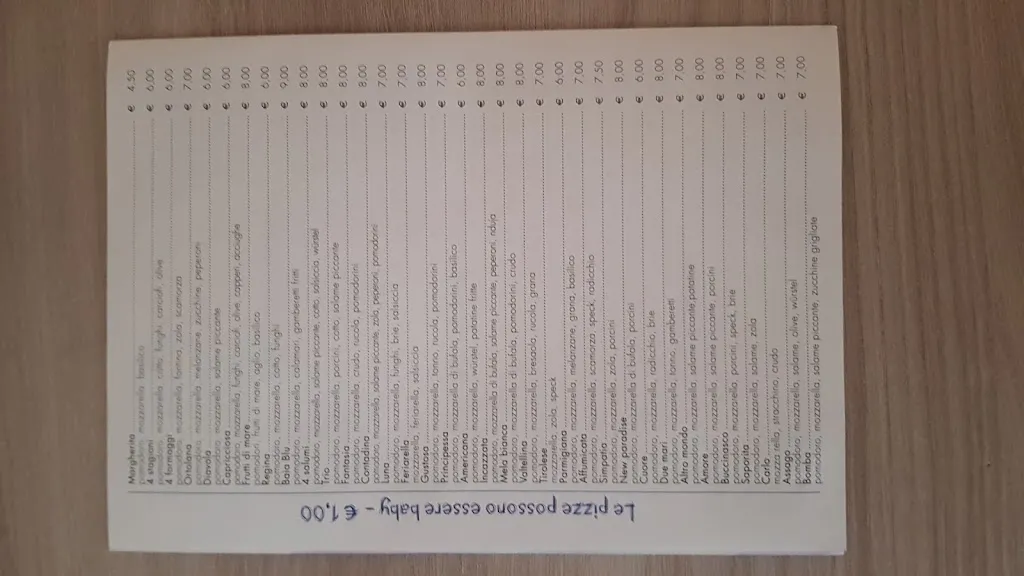 Margherita € 4,50
pomodoro, mozzarella, basilico
4 stagioni € 6,00
pomodoro, mozzarella, cotto, funghi, carciofi, olive
4 formaggi € 6,00
pomodoro, mozzarella, fontina, zola, scamorza
Ortolana € 7,00
pomodoro, mozzarella, melanzane, zucchine, peperoni
Diavola € 6,00
pomodoro, mozzarella, salame piccante
Capricciosa € 6,00
pomodoro, mozzarella, funghi, carciofi, olive, capperi, acciughe
Frutti di mare € 8,00
pomodoro, frutti di mare, aglio, basilico
Regina € 6,00
pomodoro, mozzarella, cotto, funghi
Baia Blu € 9,00
pomodoro, mozzarella, calamari, gamberetti fritti
4 salumi € 8,00
pomodoro, mozzarella, salame piccante, cotto, salsiccia, würstel
Trio € 8,00
pomodoro, mozzarella, porcini, cotto, salame piccante
Fantasia € 8,00
pomodoro, mozzarella, crudo, rucola, pomodorini
Contadina € 8,00
pomodoro, mozzarella, salame piccante, zola, peperoni, pomodorini
Luna € 7,00
pomodoro, mozzarella, funghi, brie, salsiccia
Feriarella € 7,00
mozzarella, feriarella, salsiccia
Gustosa € 8,00
pomodoro, mozzarella, tonno, rucola, pomodorini
Principessa € 7,00
pomodoro, mozzarella di bufala, pomodorini, basilico
Americana € 6,00
pomodoro, mozzarella, würstel, patatine fritte
Incazzata € 8,00
pomodoro, mozzarella di bufala, salame piccante, peperoni, nduja
Mela bianca € 8,00
pomodoro, mozzarella di bufala, pomodorini, crudo
Valtellina € 8,00
pomodoro, mozzarella, bresaola, rucola, grana
Tirolese € 7,00
mozzarella, zola, speck
Parmigiana € 6,00
pomodoro, mozzarella, melanzane, grana, basilico
Affumicata € 7,00
pomodoro, mozzarella, scamorza, speck, radicchio
Simpatia € 7,50
pomodoro, mozzarella, zola, porcini
New paradise € 8,00
pomodoro, mozzarella di bufala, porcini
Cuore € 6,00
pomodoro, mozzarella, radicchio, brie
Due mari € 8,00
pomodoro, mozzarella, tonno, gamberetti
Altro mondo € 7,00
pomodoro, mozzarella, salame piccante patatine
Amore € 8,00
pomodoro, mozzarella, salame piccante, porcini
Buccinasco € 8,00
pomodoro, mozzarella, porcini, speck, brie
Saporita € 7,00
pomodoro, mozzarella, salame, zola
Carlo € 7,00
mozzarella, stracchino, crudo
Assago € 7,00
pomodoro, mozzarella, salame, olive, würstel
Bomba € 7,00
pomodoro, mozzarella, salame piccante, zucchine grigliate
Le pizze possono essere baby - € 1,00